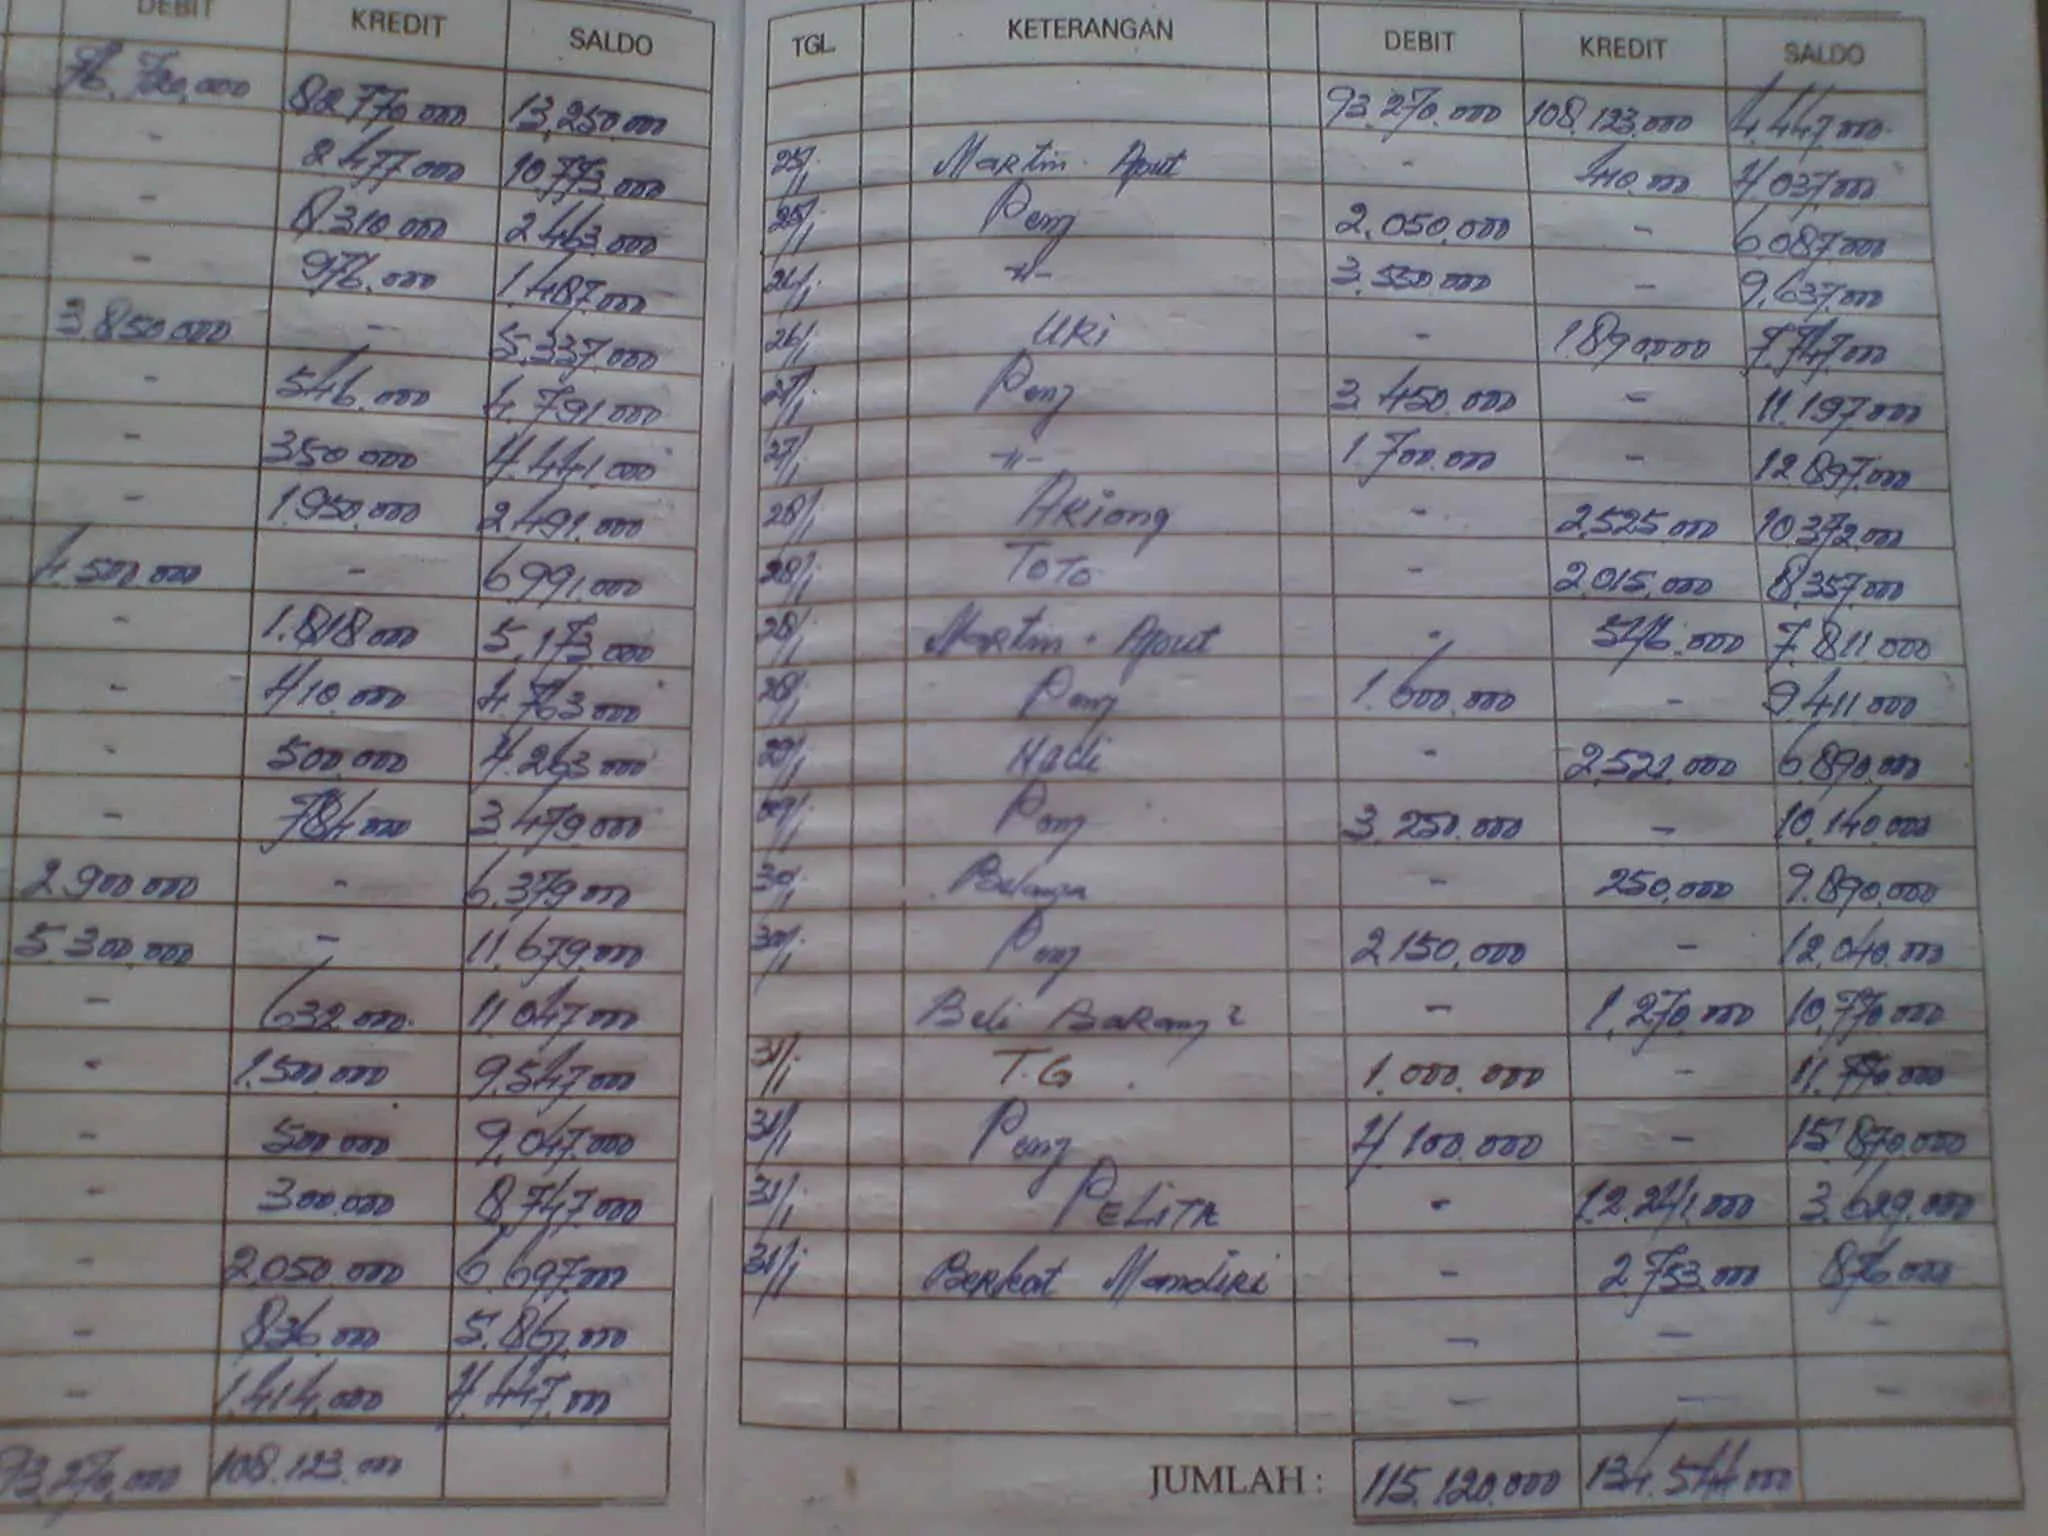 DEBIT KREDIT SALDO
76.720.000 82.770.000 13.250.000
- 2.477.000 10.773.000
- 8.310.000 2.463.000
- 976.000 1.487.000
3.850.000 - 5.337.000
- 546.000 4.791.000
- 350.000 4.441.000
- 1.950.000 2.491.000
4.500.000 - 6.991.000
- 1.818.000 5.173.000
- 410.000 4.763.000
- 500.000 4.263.000
- 784.000 3.479.000
2.900.000 - 6.379.000
5.300.000 - 11.679.000
- 632.000 11.047.000
- 1.500.000 9.547.000
- 500.000 9.047.000
- 300.000 8.747.000
- 2.050.000 6.697.000
- 836.000 5.861.000
- 1.414.000 4.447.000
93.270.000 108.123.000
TGL. KETERANGAN DEBIT KREDIT SALDO
93.270.000 108.123.000 4.447.000
25/1 Martin - Aput - 410.000 4.037.000
25/1 Penj 2.050.000 - 6.087.000
26/1 -"- 3.550.000 - 9.637.000
26/1 UKi - 1.890.000 7.747.000
27/1 Penj 3.450.000 - 11.197.000
27/1 -"- 1.700.000 - 12.897.000
28/1 AKiong - 2.525.000 10.372.000
28/1 ToTo - 2.015.000 8.357.000
28/1 Martin - Aput - 546.000 7.811.000
28/1 Penj 1.600.000 - 9.411.000
29/1 Hadi - 2.521.000 6.890.000
29/1 Penj 3.250.000 - 10.140.000
30/1 Belanja - 250.000 9.890.000
30/1 Penj 2.150.000 - 12.040.000
Beli Barang2 - 1.270.000 10.770.000
31/1 T.G 1.000.000 - 11.770.000
31/1 Penj 4.100.000 - 15.870.000
31/1 PELiTA - 12.241.000 3.629.000
31/1 Berkat Mandiri - 2.753.000 876.000
- - -
- - -
JUMLAH : 115.120.000 134.544.000